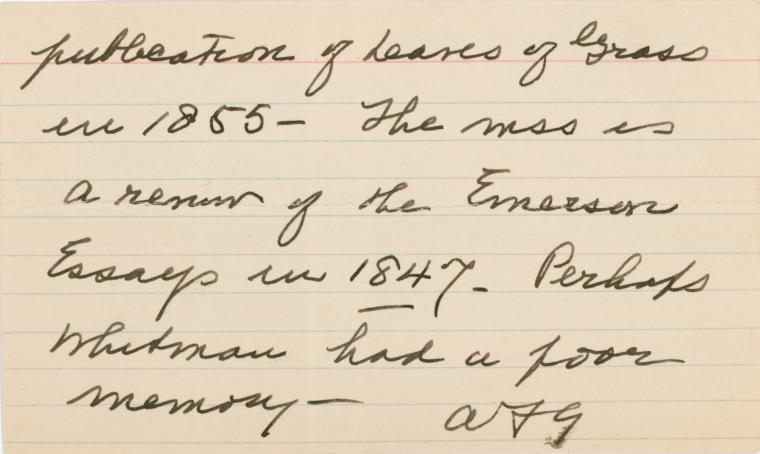 publication of Leaves of Grass
in 1855 - The mss is
a review of the Emerson
Essays in 1847 - Perhaps
Whitman had a poor
memory -